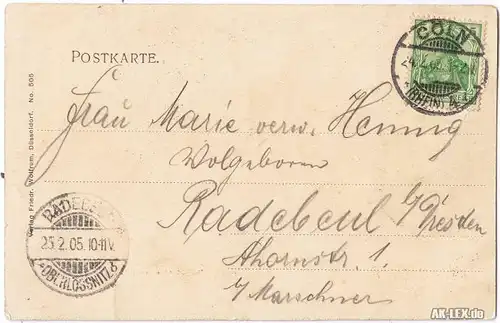 POSTKARTE.
CÖLN
24. 2.
(RHEIN)
Frau Marie verw. Hennig
Wolgeboren
Radebeul b/Dresden
Ahornstr. 1
b/Marschner
Verlag Friedr. Wolfrum, Düsseldorf. No. 505
RADEBEUL
25.2.05.10-11V.
*OBERLÖSSNITZ*
AK-LEX.de